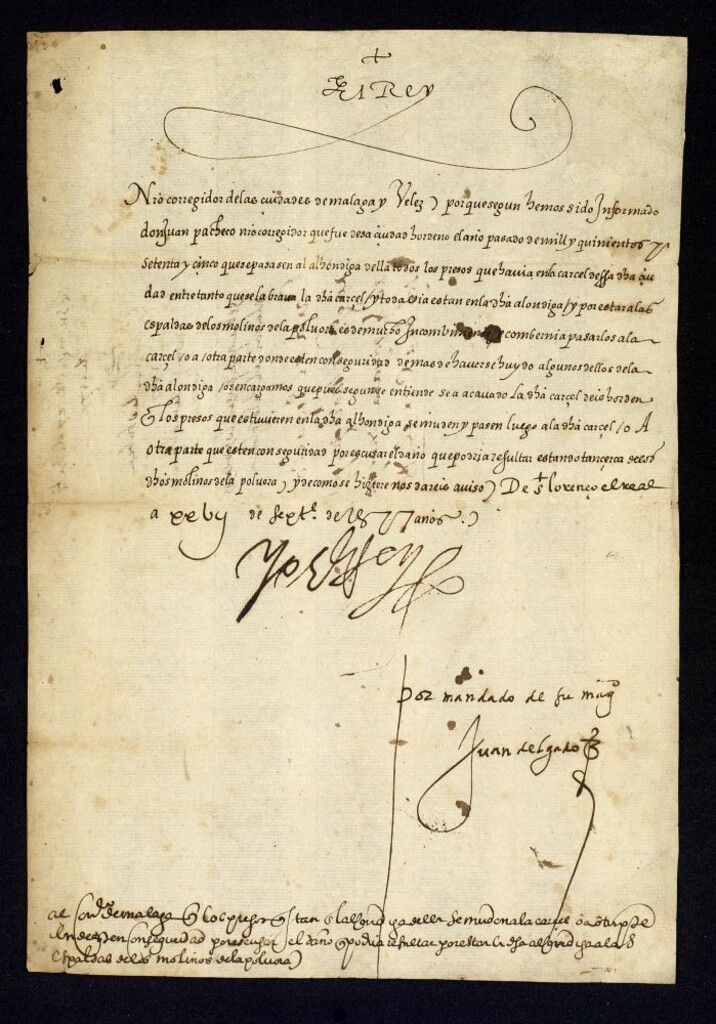 +
El Rey
Nr̃o corregidor delas ciudades de malaga y Velez) porque segun hemos sido Informado
don Juan pacheco nr̃o corregidor que fue desa ciudad hordeno el año pasado de mill y quinientos y
setenta y cinco que se pasasen al alhondiga della todos los presos que havia en la carcel dessa dħa ciu
dad entretanto que se labrava la dħa carçel / y todavia estan en la dħa alondiga / y por estar a las
espaldas de los molinos de la polvora es de mucho Incombiniente y combernia pasarlos a la
carçel / o a / otra parte donde esten con seguridad demas de haverse huydo algunos dellos de la
dħa alondiga / os encargamos que pues segun se entiende se a acavado La dħa carçel deis horden
q̃ Los presos que estuvieren en la dħa alhondiga se muden y pasen luego a la dħa carçel / o A
otra parte que esten con seguridad por escusar el daño que podria resultar estando tan cerca de esos
dħos molinos de la polvora / y de como se hiziere nos dareis aviso) De st lorenço el real
a xxvij de Septe. de 1577 años.)
Yo El Rey
Por mandado de su magd
Juan delgado
al Corr de malaga q̃ los presos q̃ estan en la alhondiga della se muden a la carcel o a otra parte
donde esten con seguridad por escusar el daño q̃ podria resultar por estar la dħa alhondiga a las
espaldas de los molinos de la polvora)